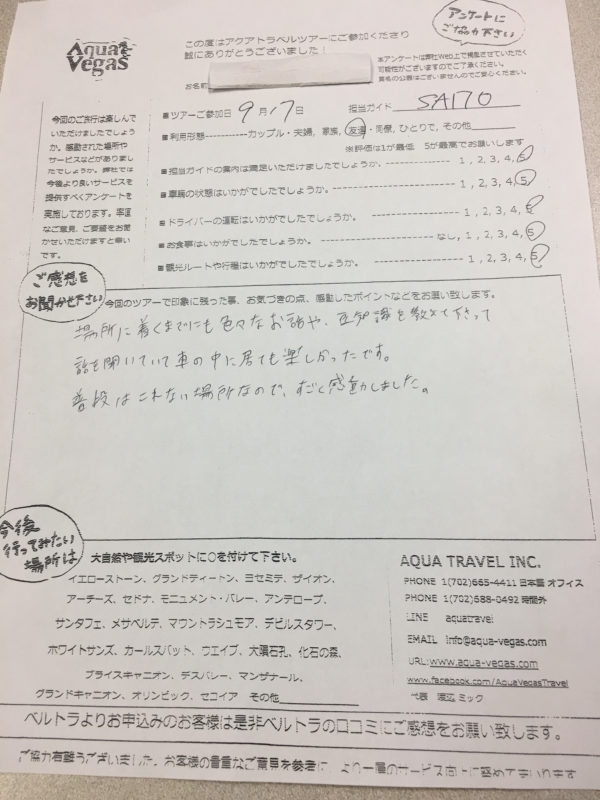 Aqua Vegas
この度はアクアトラベルツアーにご参加くださり
誠にありがとうございました！
アンケートに
ご協力下さい
本アンケートは弊社Web上で掲載させていただく
可能性がございますのでご了承ください。
実名の公表はございませんのでご安心ください。
お名前
今回のご旅行は楽しんで
いただけましたでしょう
か。感動された場所や
サービスなどがありまし
たでしょうか。弊社では
今後より良いサービスを
提供すべくアンケートを
実施しております。率直
なご意見、ご要望をお聞
かせいただけますと幸い
です。
■ツアーご参加日 9月17 担当ガイド SAITO
■利用形態-----------カップル・夫婦, 家族, 友達・同僚, ひとりで, その他
※評価は1が最低 5が最高でお願いします
■担当ガイドの案内は満足いただけましたでしょうか。---------------- 1, 2, 3, 4, 5
■車輌の状態はいかがでしたでしょうか。---------------- 1, 2, 3, 4, 5
■ドライバーの運転はいかがでしたでしょうか。---------------- 1, 2, 3, 4, 5
■お食事はいかがでしたでしょうか。---------------- なし, 1, 2, 3, 4, 5
■観光ルートや行程はいかがでしたでしょうか。---------------- 1, 2, 3, 4, 5
ご感想を
お聞かせ下さい
今回のツアーで印象に残った事、お気づきの点、感動したポイントなどをお願い致します。
場所に着くまでにも色々なお話や、豆知識を教えて下さって
話を聞いていて車の中に居ても楽しかったです。
普段はこれない場所なので、すごく感動しました。
今後
行ってみたい
場所は
大自然や観光スポットに○を付けて下さい。
イエローストーン、グランドティートン、ヨセミテ、ザイオン、
アーチーズ、セドナ、モニュメント・バレー、アンテロープ、
サンタフェ、メサベルデ、マウントラシュモア、デビルスタワー、
ホワイトサンズ、カールスバット、ウエイブ、大隕石孔、化石の森、
ブライスキャニオン、デスバレー、マンザナール、
グランドキャニオン、オリンピック、セコイア その他
AQUA TRAVEL INC.
PHONE 1(702)665-4411 日本語 オフィス
PHONE 1(702)688-0492 時間外
LINE aquatravel
EMAIL info@aqua-vegas.com
URL:www.aqua-vegas.com
www.facebook.com/AquaVegasTravel
代表 渡辺 ミック
ベルトラよりお申込みのお客様は是非ベルトラの口コミにご感想をお願い致します。
ご協力有難うございました。お客様の貴重なご意見を参考に、より一層のサービス向上に努めてまいります